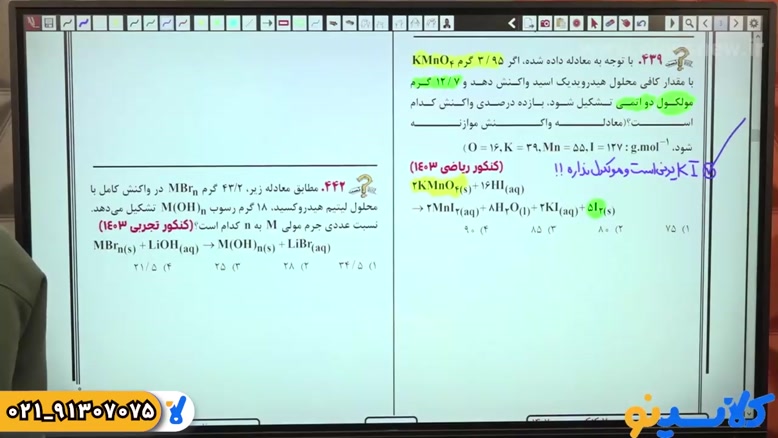 ۴۳۹. با توجه به معادله داده شده، اگر ۳/۹۵ گرم KMnO₄
با مقدار کافی محلول هیدرویدیک اسید واکنش دهد و ۱۲/۷ گرم
مولکول دو اتمی تشکیل شود، بازده درصدی واکنش کدام
است؟(معادله واکنش موازنه
شود، O = ۱۶، K = ۳۹، Mn = ۵۵، I = ۱۲۷ : g.mol⁻¹)
(کنکور ریاضی ۱۴۰۳)
KI یونی است و مولکول نداره !!
۲KMnO₄(s) + ۱۶HI(aq)
→ ۲MnI₂(aq) + ۸H₂O(l) + ۲KI(aq) + ۵I₂(s)
۱) ۷۵ ۲) ۸۰ ۳) ۸۵ ۴) ۹۰
۴۴۲. مطابق معادله زیر، ۴۳/۲ گرم MBrₙ در واکنش کامل با
محلول لیتیم هیدروکسید، ۱۸ گرم رسوب M(OH)ₙ تشکیل می‌دهد.
نسبت عددی جرم مولی M به n کدام است؟ (کنکور تجربی ۱۴۰۳)
MBrₙ(s) + LiOH(aq) → M(OH)ₙ(s) + LiBr(aq)
۱) ۳۴/۵ ۲) ۲۸ ۳) ۲۵ ۴) ۲۱/۵
۰۲۱_۹۱۳۰۷۰۷۵
کلاسینو